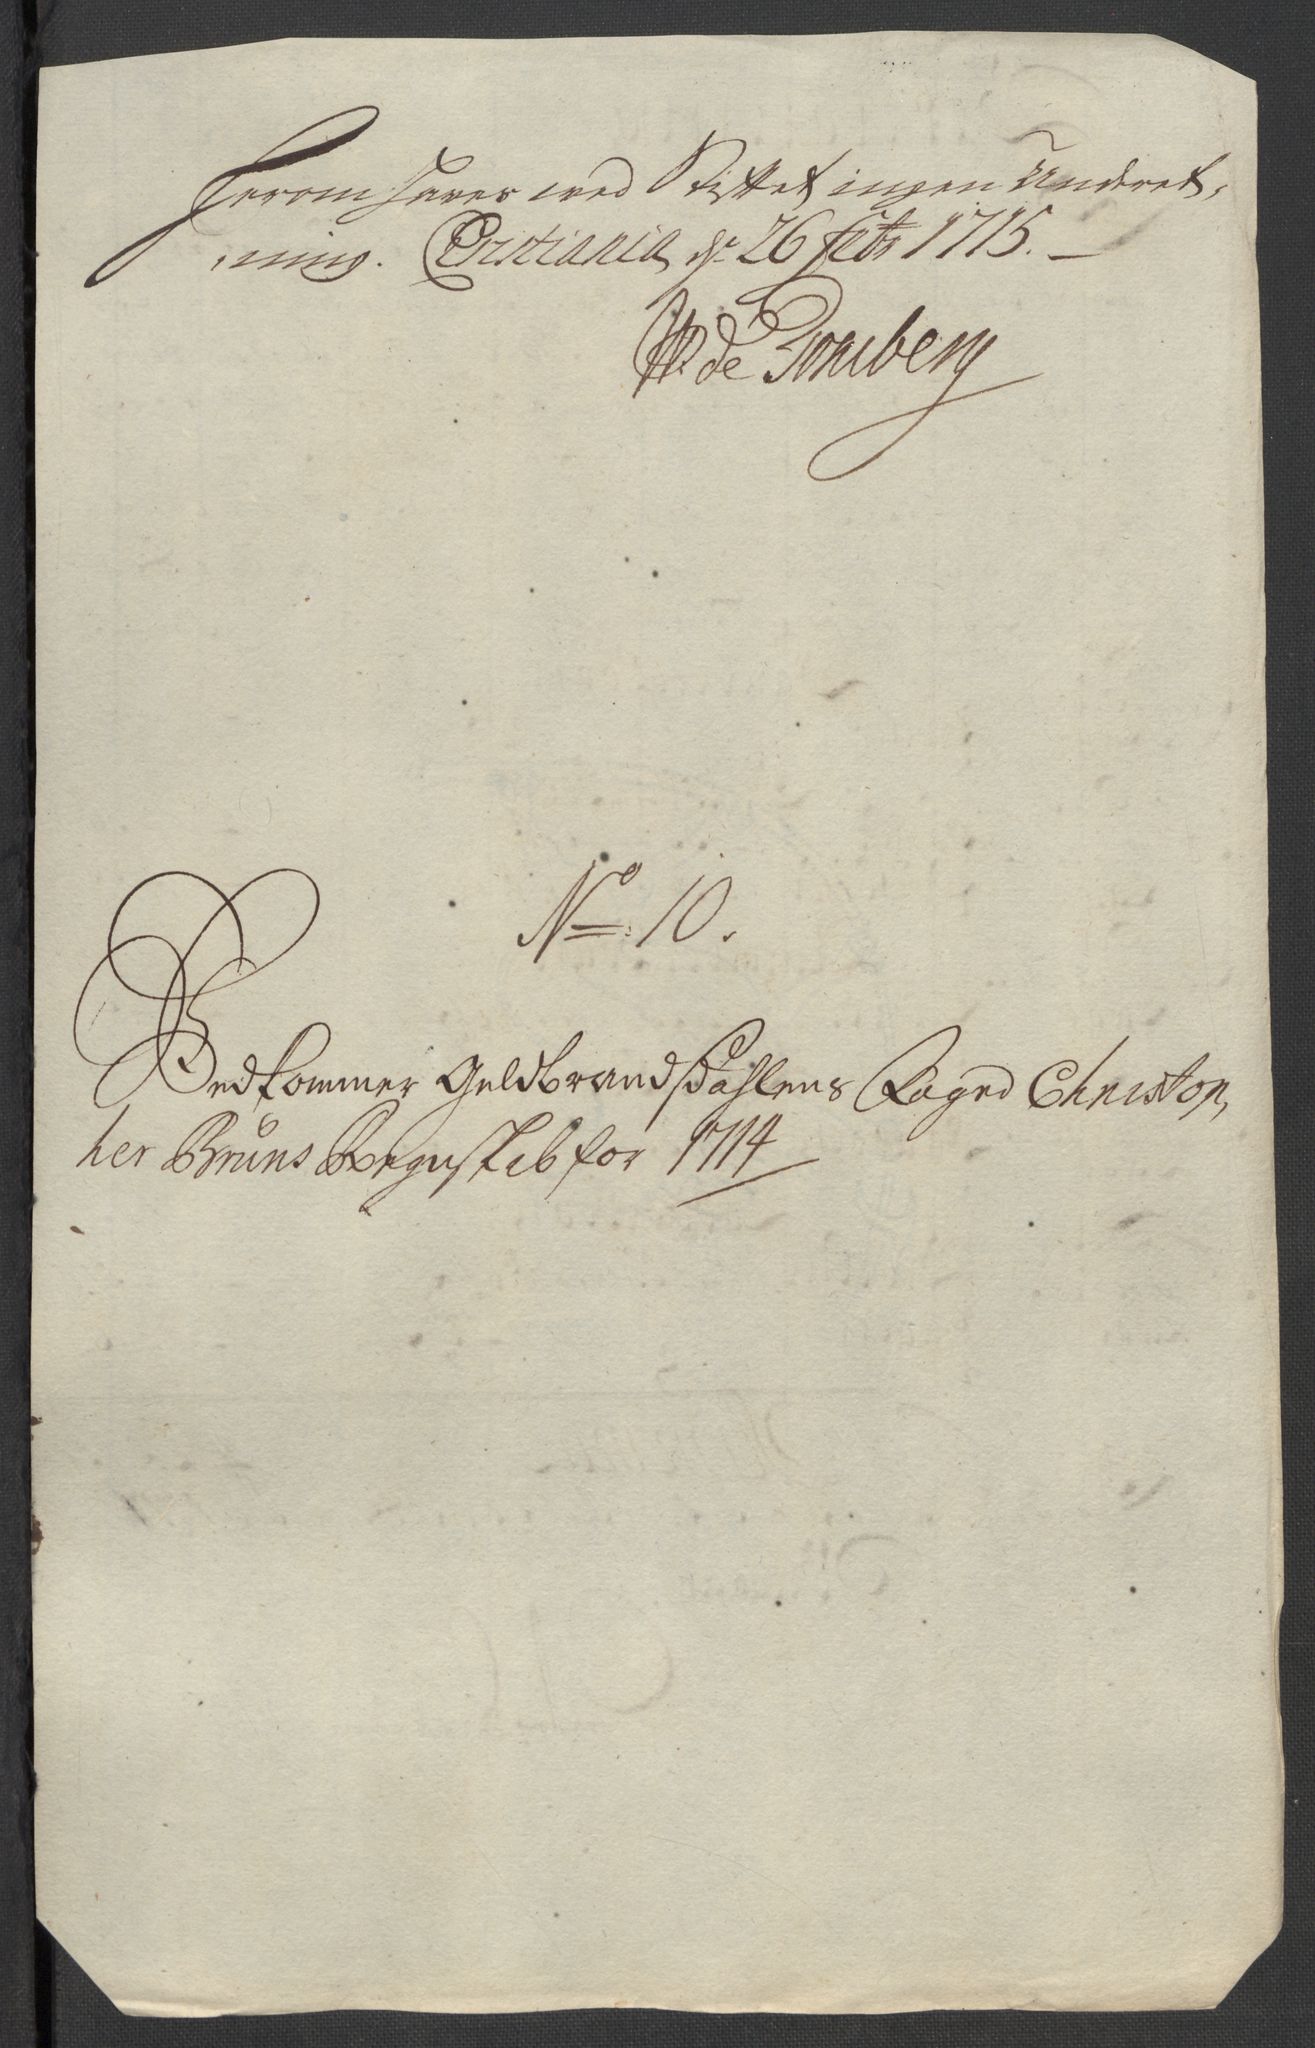 Herom haves wed Stiftet ingen Underet,
,ning. Christiania d 26 febr 1715.
W de Tonsberg
No 10.
Vedkommer Guldbrandsdahlens Foged Christop,
her Bruns Regnskab for 1714